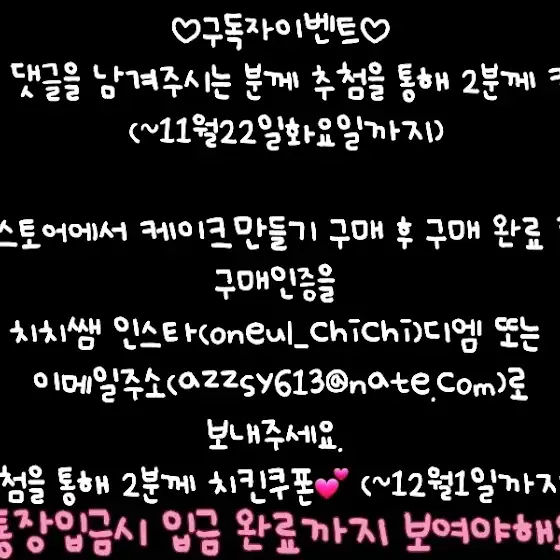 ♡구독자이벤트♡
댓글을 남겨주시는 분께 추첨을 통해 2분께
(~11월22일화요일까지)
스토어에서 케이크만들기 구매 후 구매 완료
구매인증을
치치쌤 인스타(oneul_chichi)디엠 또는
이메일주소(azzsy613@nate.com)로
보내주세요.
첨을 통해 2분께 치킨쿠폰💕 (~12월1일까지
통장입금시 입금 완료까지 보여야해